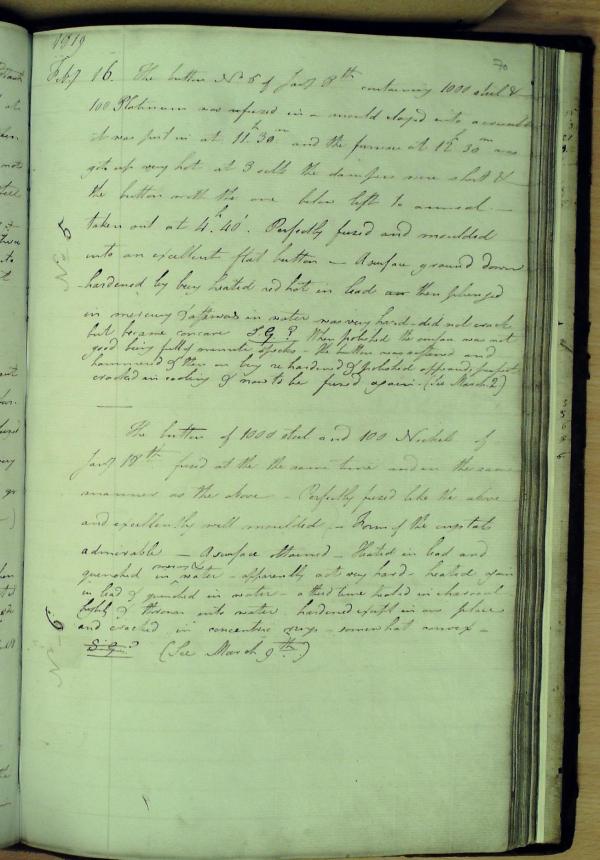 1819
70
Feby 16. The button No 5 of Jany 8th containing 1000 steel &
100 Platinum was refused in a mould clayed into a crucible
it was put in at 11h.30m and the furnace at 12h 30m was
got up very hot at 3 oclk the dampers were shut &
the button with the one below left to anneal -
taken out at 4h. 40'. Perfectly fused and moulded
into an excellent flat button - A surface ground down
hardened by being heated red hot in lead then plunged
in mercury & afterwards in water was very hard - did not crack
but became concave S G? When polished the surface was not
good being full of minute specks - the button was softened and
hammered & then on being rehardened & polished appeared perfect
cracked in cooling & now to be fused again - (See March 2)
The button of 1000 steel and 100 Nickel of
Jany 18th fused at the the same time and in the same
manner as the above - Perfectly fused like the above
and excellently well moulded - Form of the crystals
admirable - A surface attained - Heated in lead and
quenched in water - apparently not very hard - heated again
in lead & quenched in water - a third time heated in charcoal
& thrown into water hardened except in one place
and cracked in concentric rings - somewhat convex -
S.G.? (See March 9th)
No 5
No 6